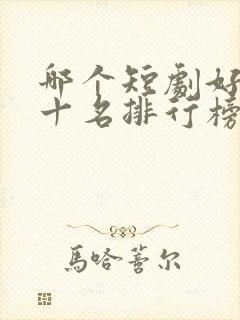 哪个短劇好
十名排行榜
馬哈蓄尔